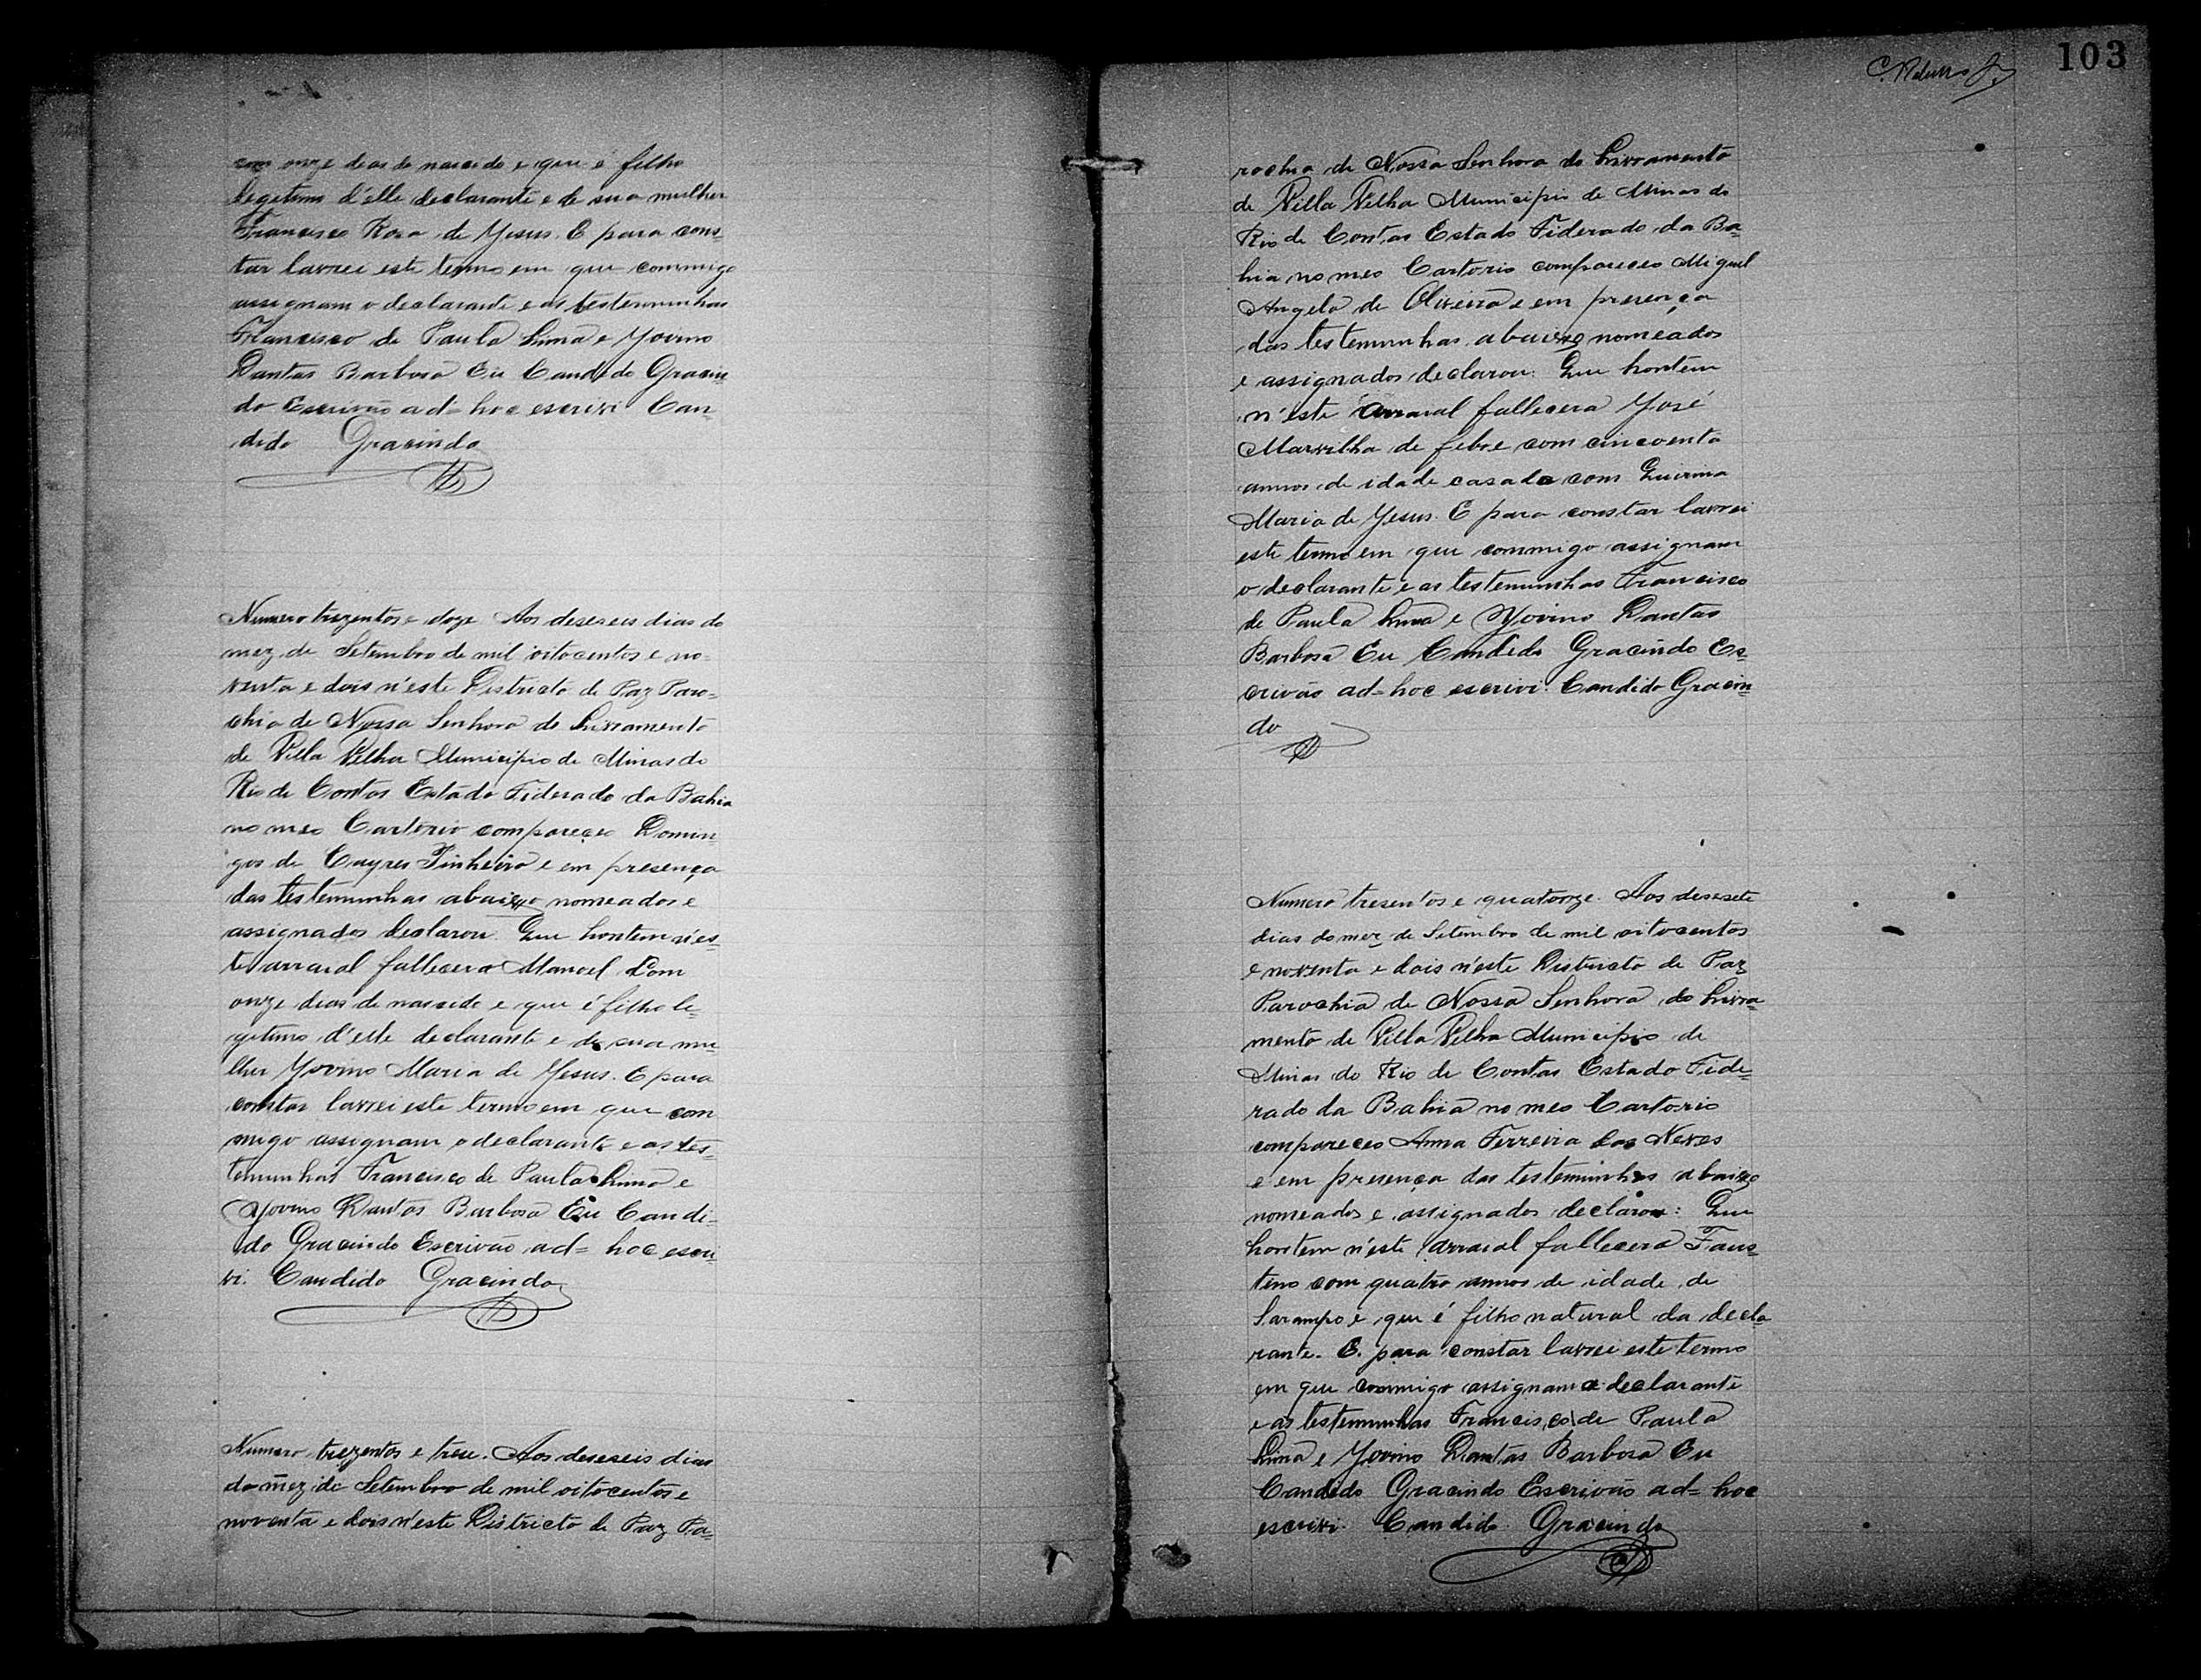 com onze dias de nascido e que é filho
legitimo d'elle declarante e de sua mulher
Francisca Rosa de Jesus. E para cons-
tar lavrei este termo em que commigo
assignam o declarante e as testemunhas
Francisco de Paula Lima e Jovino
Dantas Barbosa Eu Candido Gracin-
do Escrivão ad=hoc escrivi Can-
dido Gracindo
Numero trezentos e doze Aos deseseis dias do
mez de Setembro de mil oitocentos e no-
venta e dois n'este Districto de Paz Paro-
chia de Nossa Senhora do Livramento
de Villa Velha Municipio de Minas do
Rio de Contas Estado Federado da Bahia
no meo Cartorio compareceo Domin
gos de Cayres Pinheiro e em presença
das testemunhas abaixo nomeados e
assignados declarou Que hontem n'es-
te arraial fallecera Manoel Com
onze dias de nascido e que é filho le-
gitimo d'elle declarante e de sua mu
lher Jovina Maria de Jesus. E para
constar lavrei este termo em que com
migo assignam o declarante e as tes-
temunhas Francisco de Paula Lima e
Jovino Dantas Barbosa Eu Candi-
do Gracindo Escrivão ad=hoc escri
vi. Candido Gracindo
Numero trezentos e trese. Aos deseseis dias
do mez de Setembro de mil oitocentos e
noventa e dois n'este Districto de Paz Pa-
103
rochia de Nossa Senhora do Livramento
de Villa Velha Municipio de Minas do
Rio de Contas Estado Federado da Ba-
hia no meo Cartorio compareceo Miguel
Angelo de Oliveira e em presença
das testemunhas abaixo nomeados
e assignados declarou: Que hontem
n'este arraial fallecera José
Marvilha de febre com cincoenta
annos de idade casado com Quirina
Maria de Jesus. E para constar lavrei
este termo em que commigo assignam
o declarante e as testemunhas Francisco
de Paula Lima e Jovino Dantas
Barbosa Eu Candido Gracindo Es-
crivão ad=hoc escrivi. Candido Gracin-
do
Numero tresentos e quatorze. Aos desesete
dias do mez de Setembro de mil oitocentos
e noventa e dois n'este Districto de Paz
Parochia de Nossa Senhora do Livra-
mento de Villa Velha Municipio de
Minas do Rio de Contas Estado Fede-
rado da Bahia no meo Cartorio
compareceo Anna Ferreira das Neves
e em presença das testemunhas abaixo
nomeados e assignados declarou: Que
hontem n'este arraial fallecera Faus-
tino com quatro annos de idade, de
Sarampo e que é filho natural da decla
rante. E. para constar lavrei este termo
em que commigo assignam a declarante
e as testemunhas Francisco de Paula
Lima e Jovino Dantas Barbosa Eu
Candido Gracindo Escrivão ad=hoc
escrivi. Candido Gracindo